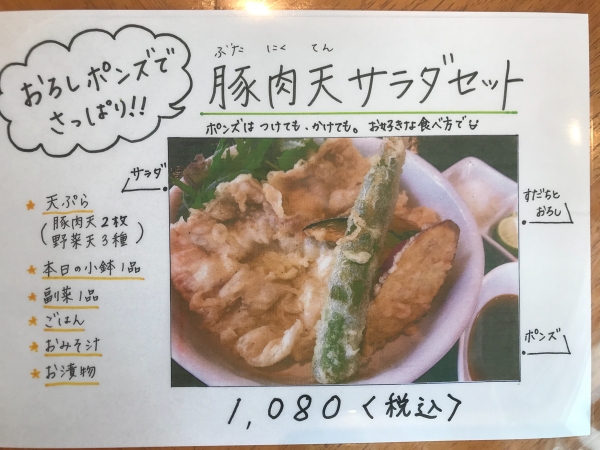 おろしポンズで
さっぱり!!
ぶた にく てん
豚肉天サラダセット
ポンズは つけても、かけても。 お好きな食べ方で
サラダ
★ 天ぷら
(豚肉天2枚
野菜天3種)
★ 本日の小鉢1品
★ 副菜1品
★ ごはん
★ おみそ汁
★ お漬物
すだちと
おろし
ポンズ
1,080<税込>